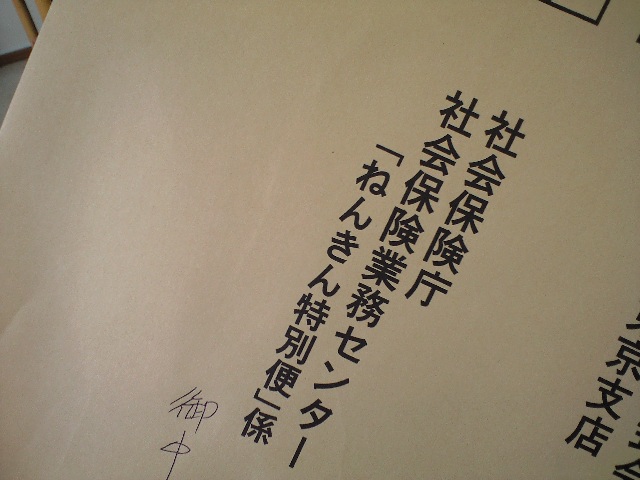 京支店
社会保険庁
社会保険業務センター
「ねんきん特別便」係
御中